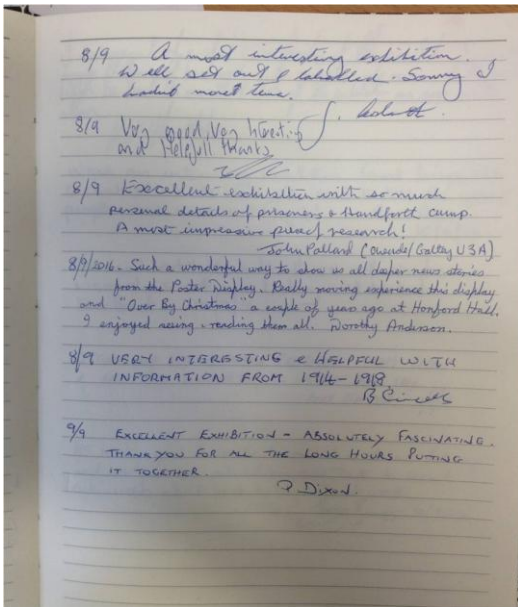 8/9 A most interesting exhibition.
Well set out & labelled. Sorry I
hadn't more time.
8/9 Very good, Very Interesting
and Helpfull thanks
8/9 Excellent exhibition with so much
personal details of prisoners & Handforth camp.
A most impressive piece of research!
John Pallard (Cheadle/Gatley U3A)
8/9/2016. Such a wonderful way to show us all deeper news stories
from the Poster Display. Really moving experience this display
and "Over By Christmas" a couple of years ago at Honford Hall.
I enjoyed seeing & reading them all. Dorothy Anderson.
8/9 VERY INTERESTING & HELPFUL WITH
INFORMATION FROM 1914-1918.
B
9/9 EXCELLENT EXHIBITION - ABSOLUTELY FASCINATING.
THANK YOU FOR ALL THE LONG HOURS PUTTING
IT TOGETHER.
P Dixon.